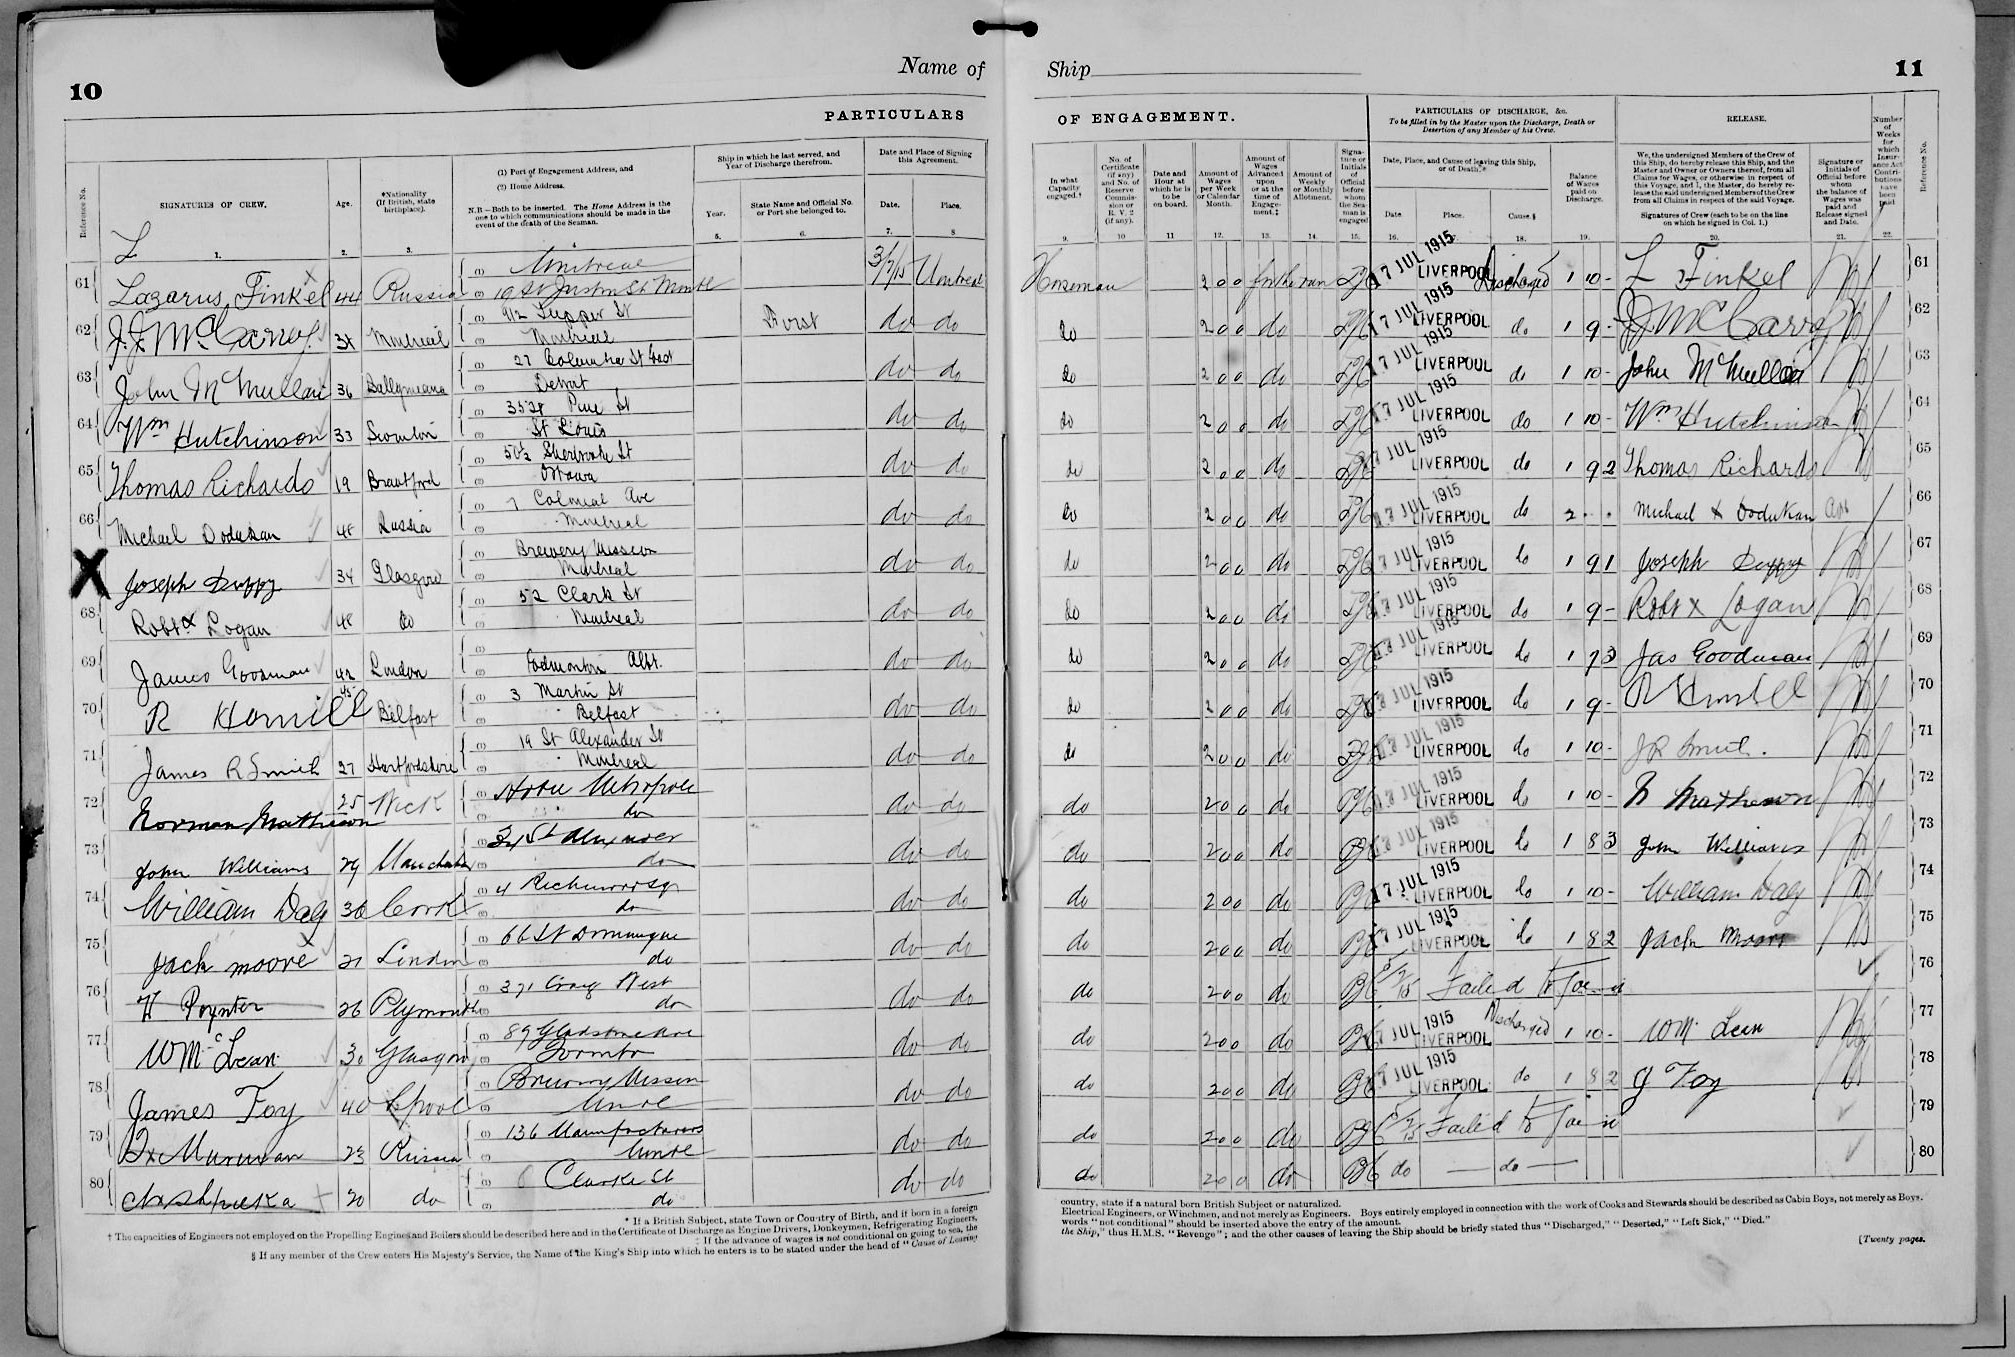 10
Name of
PARTICULARS
Reference No.
SIGNATURES OF CREW.
Age.
*Nationality
(If British, state
birthplace).
(1) Port of Engagement Address, and
(2) Home Address.
N.B.—Both to be inserted. The Home Address is the
one to which communications should be made in the
event of the death of the Seaman.
Ship in which he last served, and
Year of Discharge therefrom.
Year.
State Name and Official No.
or Port she belonged to.
Date and Place of Signing
this Agreement.
Date.
Place.
1. 2. 3. 4 5. 6. 7. 8
L
61 Lazarus Finkel 44 Russia (1) Montreal (2) 19 St Justin St 3/7/15 Montreal
62 J.J. McCarvy 38 Montreal (1) 912 Tupper St (2) Montreal First do do
63 John McMullan 36 Ballymeana (1) 27 Columbia St West (2) Detroit do do
64 Wm Hutchinson 33 (1) 3528 Pine St (2) St Louis do do
65 Thomas Richards 19 Brantford (1) Sherbrooke St (2) Ottawa do do
66 Michael Dodukan 48 Russia (1) 7 Colonial Ave (2) Montreal do do
X Joseph Duppy 34 Glasgow (1) Brewery Mission (2) Montreal do do
68 Robt x Logan 48 do (1) 52 Clark St (2) Montreal do do
69 James Goodman 42 London (1) (2) Edmonton Albt. do do
70 R Hamill 45 Belfast (1) 3 Martin St (2) Belfast do do
71 James R Smith 27 Hertfordshire (1) 19 St Alexander St (2) Montreal do do
72 Norman Mathieson 25 Wick (1) Hotel Metropole (2) do do do
73 John Williams 29 (1) 34 St Alexander (2) do do do
74 William Daly 36 Cork (1) 4 Richmond Sq (2) do do do
75 Jack Moore 21 London (1) 66 St Dominique (2) do do do
76 H Poynter 26 Plymouth (1) 371 Craig West (2) do do do
77 W McLean 30 Glasgow (1) 89 Gladstone Ave (2) Toronto do do
78 James Foy 40 L'pool (1) Brewery Mission (2) do do
79 23 Russia (1) 136 Manufacturers (2) do do
80 20 do (1) Clarke St (2) do do do
* If a British Subject, state Town or Country of Birth, and if born in a foreign
† The capacities of Engineers not employed on the Propelling Engines and Boilers should be described here and in the Certificate of Discharge as Engine Drivers, Donkeymen, Refrigerating Engineers,
‡ If the advance of wages is not conditional on going to sea, the
§ If any member of the Crew enters His Majesty's Service, the Name of the King's Ship into which he enters is to be stated under the head of "Cause of Leaving
Ship
11
OF ENGAGEMENT.
PARTICULARS OF DISCHARGE, &c.
To be filled in by the Master upon the Discharge, Death or
Desertion of any Member of his Crew.
RELEASE.
Number
of
Weeks
for
which
Insur-
ance Act
Contri-
butions
have
been
paid
Reference No.
In what
Capacity
engaged.†
No. of
Certificate
(if any)
and No. of
Reserve
Commis-
sion or
R. V. 2
(if any).
Date and
Hour at
which he is
to be
on board.
Amount of
Wages
per Week
or Calendar
Month.
Amount of
Wages
Advanced
upon
or at the
time of
Engage-
ment.‡
Amount of
Weekly
or Monthly
Allotment.
Signa-
ture or
Initials
of
Official
before
whom
the Sea-
man is
engaged
Date, Place, and Cause of leaving this Ship,
or of Death.*
Date
Place.
Cause.§
Balance
of Wages
paid on
Discharge.
We, the undersigned Members of the Crew of
this Ship, do hereby release this Ship, and the
Master and Owner or Owners thereof, from all
Claims for Wages, or otherwise in respect of
this Voyage, and I, the Master, do hereby re-
lease the said undersigned Members of the Crew
from all Claims in respect of the said Voyage.
Signatures of Crew (each to be on the line
on which he signed in Col. 1.)
Signature or
Initials of
Official before
whom
the balance of
Wages was
paid and
Release signed
and Date.
9. 10 11 12. 13. 14. 15. 16. 18. 19. 20. 21. 22.
Horseman 2 0 0 for the run 17 JUL 1915 LIVERPOOL Discharged 1 10 - L Finkel 61
do 2 0 0 do 17 JUL 1915 LIVERPOOL do 1 9 - J.J McCarvy 62
do 2 0 0 do 17 JUL 1915 LIVERPOOL do 1 10 - John McMullan 63
do 2 0 0 do 17 JUL 1915 LIVERPOOL do 1 10 - Wm Hutchinson 64
do 2 0 0 do 17 JUL 1915 LIVERPOOL do 1 9 2 Thomas Richards 65
do 2 0 0 do 17 JUL 1915 LIVERPOOL do 2 . . Michael x Dodukan 66
do 2 0 0 do 17 JUL 1915 LIVERPOOL do 1 9 1 Joseph Duppy 67
do 2 0 0 do 17 JUL 1915 LIVERPOOL do 1 9 - Robt x Logan 68
do 2 0 0 do 17 JUL 1915 LIVERPOOL do 1 7 3 Jas Goodman 69
do 2 0 0 do 17 JUL 1915 LIVERPOOL do 1 9 - R Hamill 70
do 2 0 0 do 17 JUL 1915 LIVERPOOL do 1 10 - J R Smith. 71
do 2 0 0 do 17 JUL 1915 LIVERPOOL do 1 10 - N Mathieson 72
do 2 0 0 do 17 JUL 1915 LIVERPOOL do 1 8 3 John Williams 73
do 2 0 0 do 17 JUL 1915 LIVERPOOL do 1 10 - William Daly 74
do 2 0 0 do 17 JUL 1915 LIVERPOOL do 1 8 2 Jack Moore 75
do 2 0 0 do Failed to Join 76
do 2 0 0 do 17 JUL 1915 LIVERPOOL Discharged 1 10 - W Mc Lean 77
do 2 0 0 do 17 JUL 1915 LIVERPOOL do 1 8 2 J Foy 78
do 2 0 0 do Failed to Join 79
do 2 0 0 do do — do — 80
country, state if a natural born British Subject or naturalized.
Electrical Engineers, or Winchmen, and not merely as Engineers. Boys entirely employed in connection with the work of Cooks and Stewards should be described as Cabin Boys, not merely as Boys.
words "not conditional" should be inserted above the entry of the amount.
the Ship," thus H.M.S. "Revenge"; and the other causes of leaving the Ship should be briefly stated thus "Discharged," "Deserted," "Left Sick," "Died."
[Twenty pages.